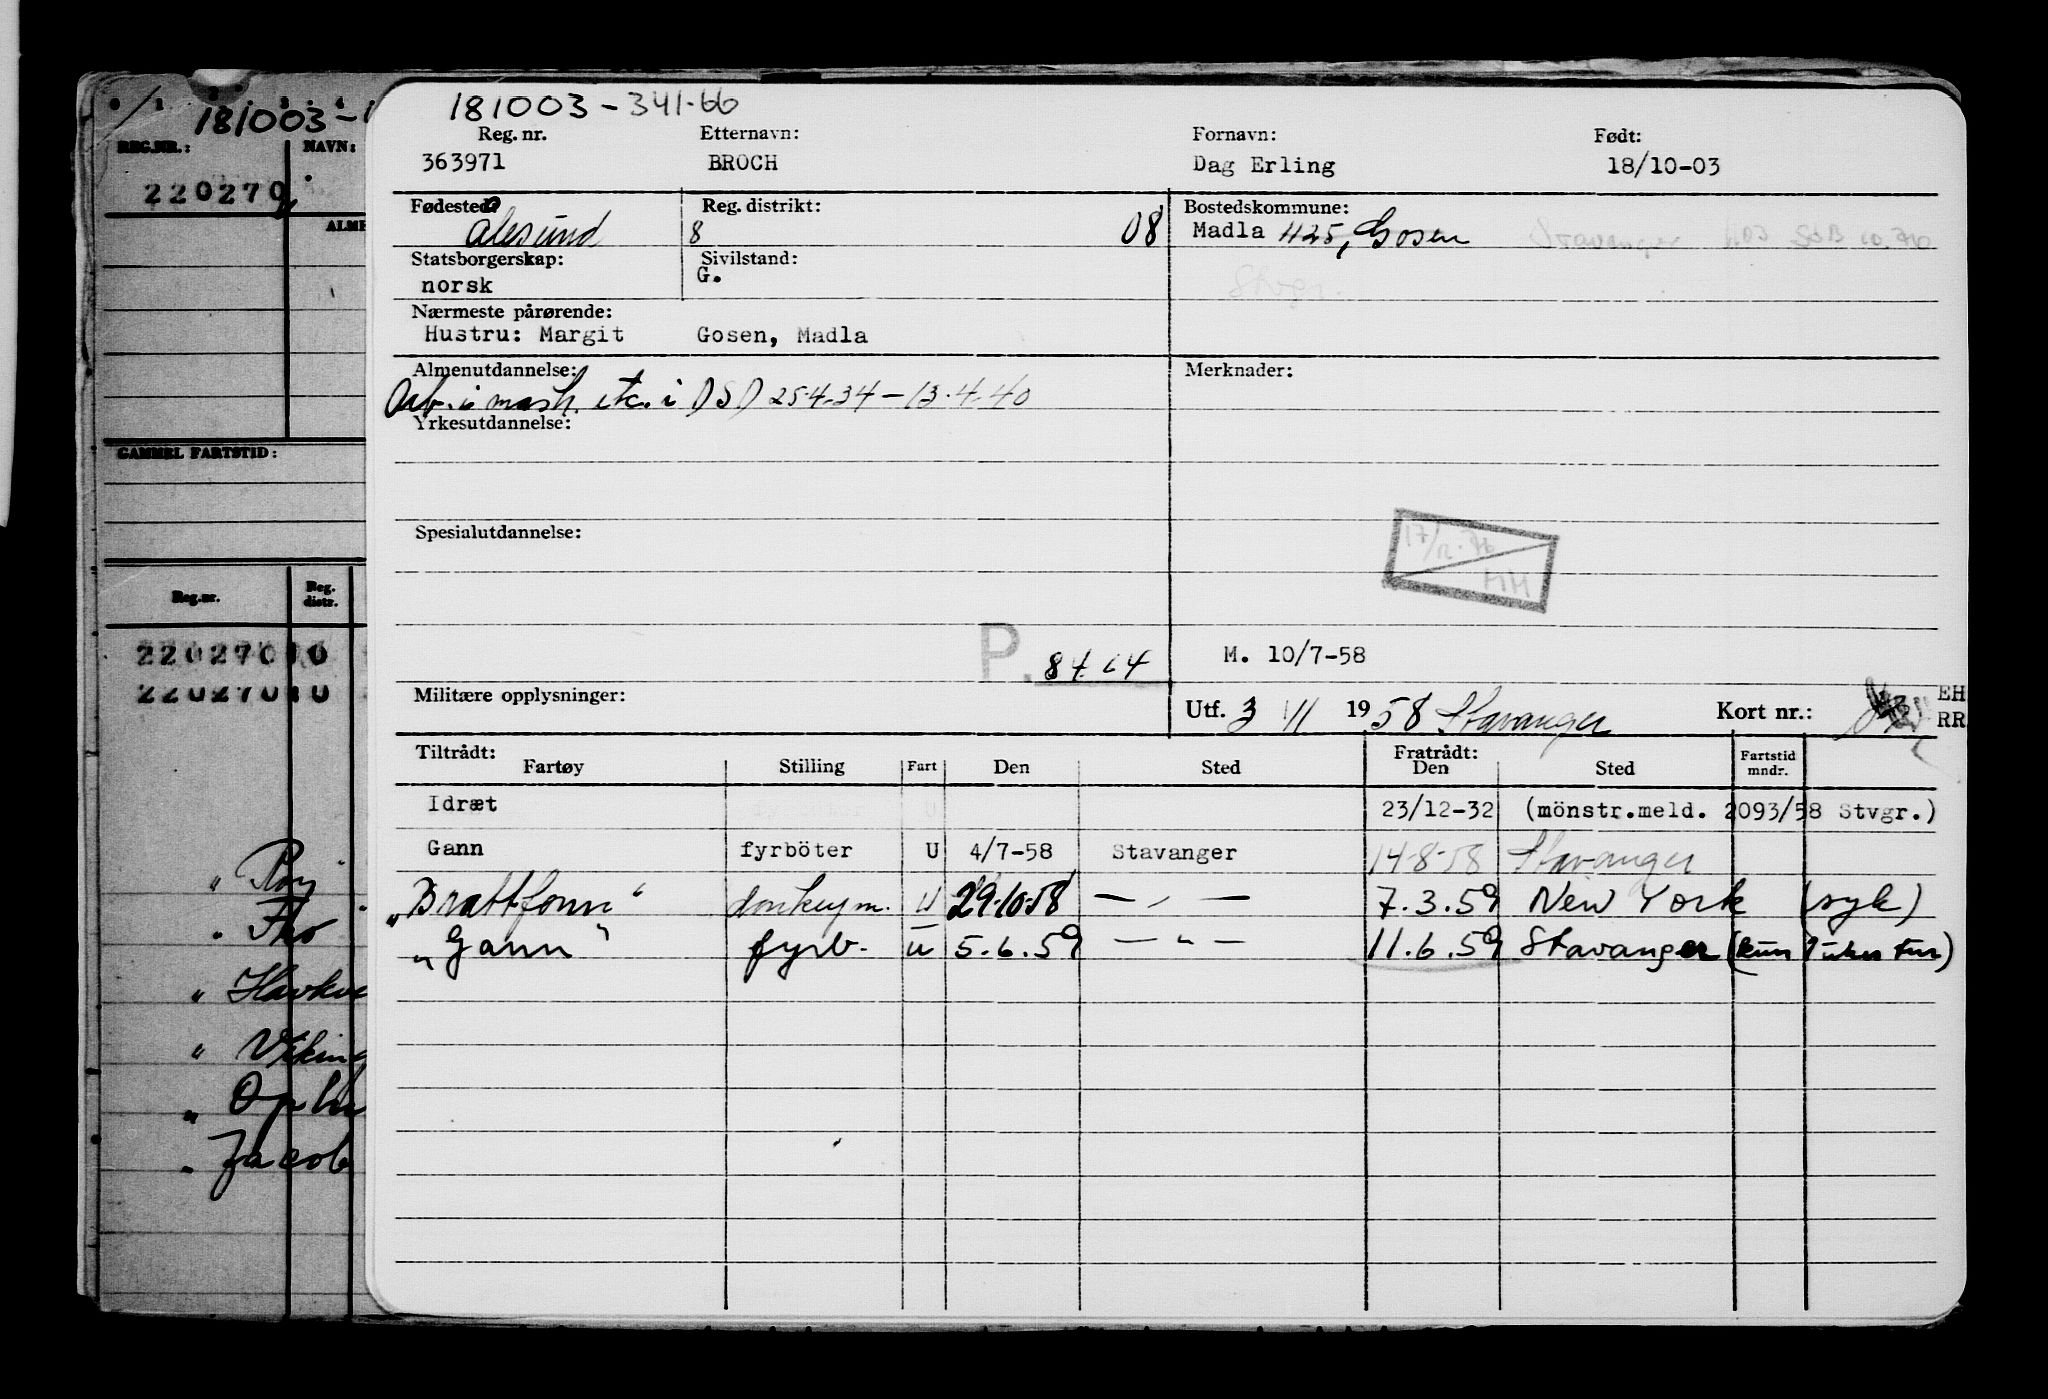 181003-341-66
Reg. nr. Etternavn: Fornavn: Født:
363971 BROCH Dag Erling 18/10-03
Fødested: Reg. distrikt: Bostedskommune:
Ålesund 8 08 Madla 425, Gosen Stavanger 103
Statsborgerskap: Sivilstand:
norsk G. Stvgr.
Nærmeste pårørende:
Hustru: Margit Gosen, Madla
Almenutdannelse: Merknader:
Arb. i mask. etc. i DSD 25.4.34 - 13.4.40
Yrkesutdannelse:
Spesialutdannelse:
17/12-76
HH
P. 8464
M. 10/7-58
Militære opplysninger:
Utf. 3 VII 1958 Stavanger Kort nr.: EH
RR
Tiltrådt: Fratrådt:
Fartøy Stilling Fart Den Sted Den Sted Fartstid mndr.
Idræt 23/12-32 (mönstr.meld. 2093/58 Stvgr.)
Gann fyrböter U 4/7-58 Stavanger 14-8-58 Stavanger
"Brattfonn" donkeym. U 29.10.58 — " — 7.3.59 New York (syk)
"Gann" fyrb. U 5.6.59 — " — 11.6.59 Stavanger (kun 1 ukes tur)
0 1 2 3 4
181003-
REG.NR.: NAVN:
220270
ALME
GAMMEL FARTSTID:
Reg.nr. Reg. distr.
220270
220270
" Roy
" Tho
" Havkv
" Viking
" Oplu
" Jacob